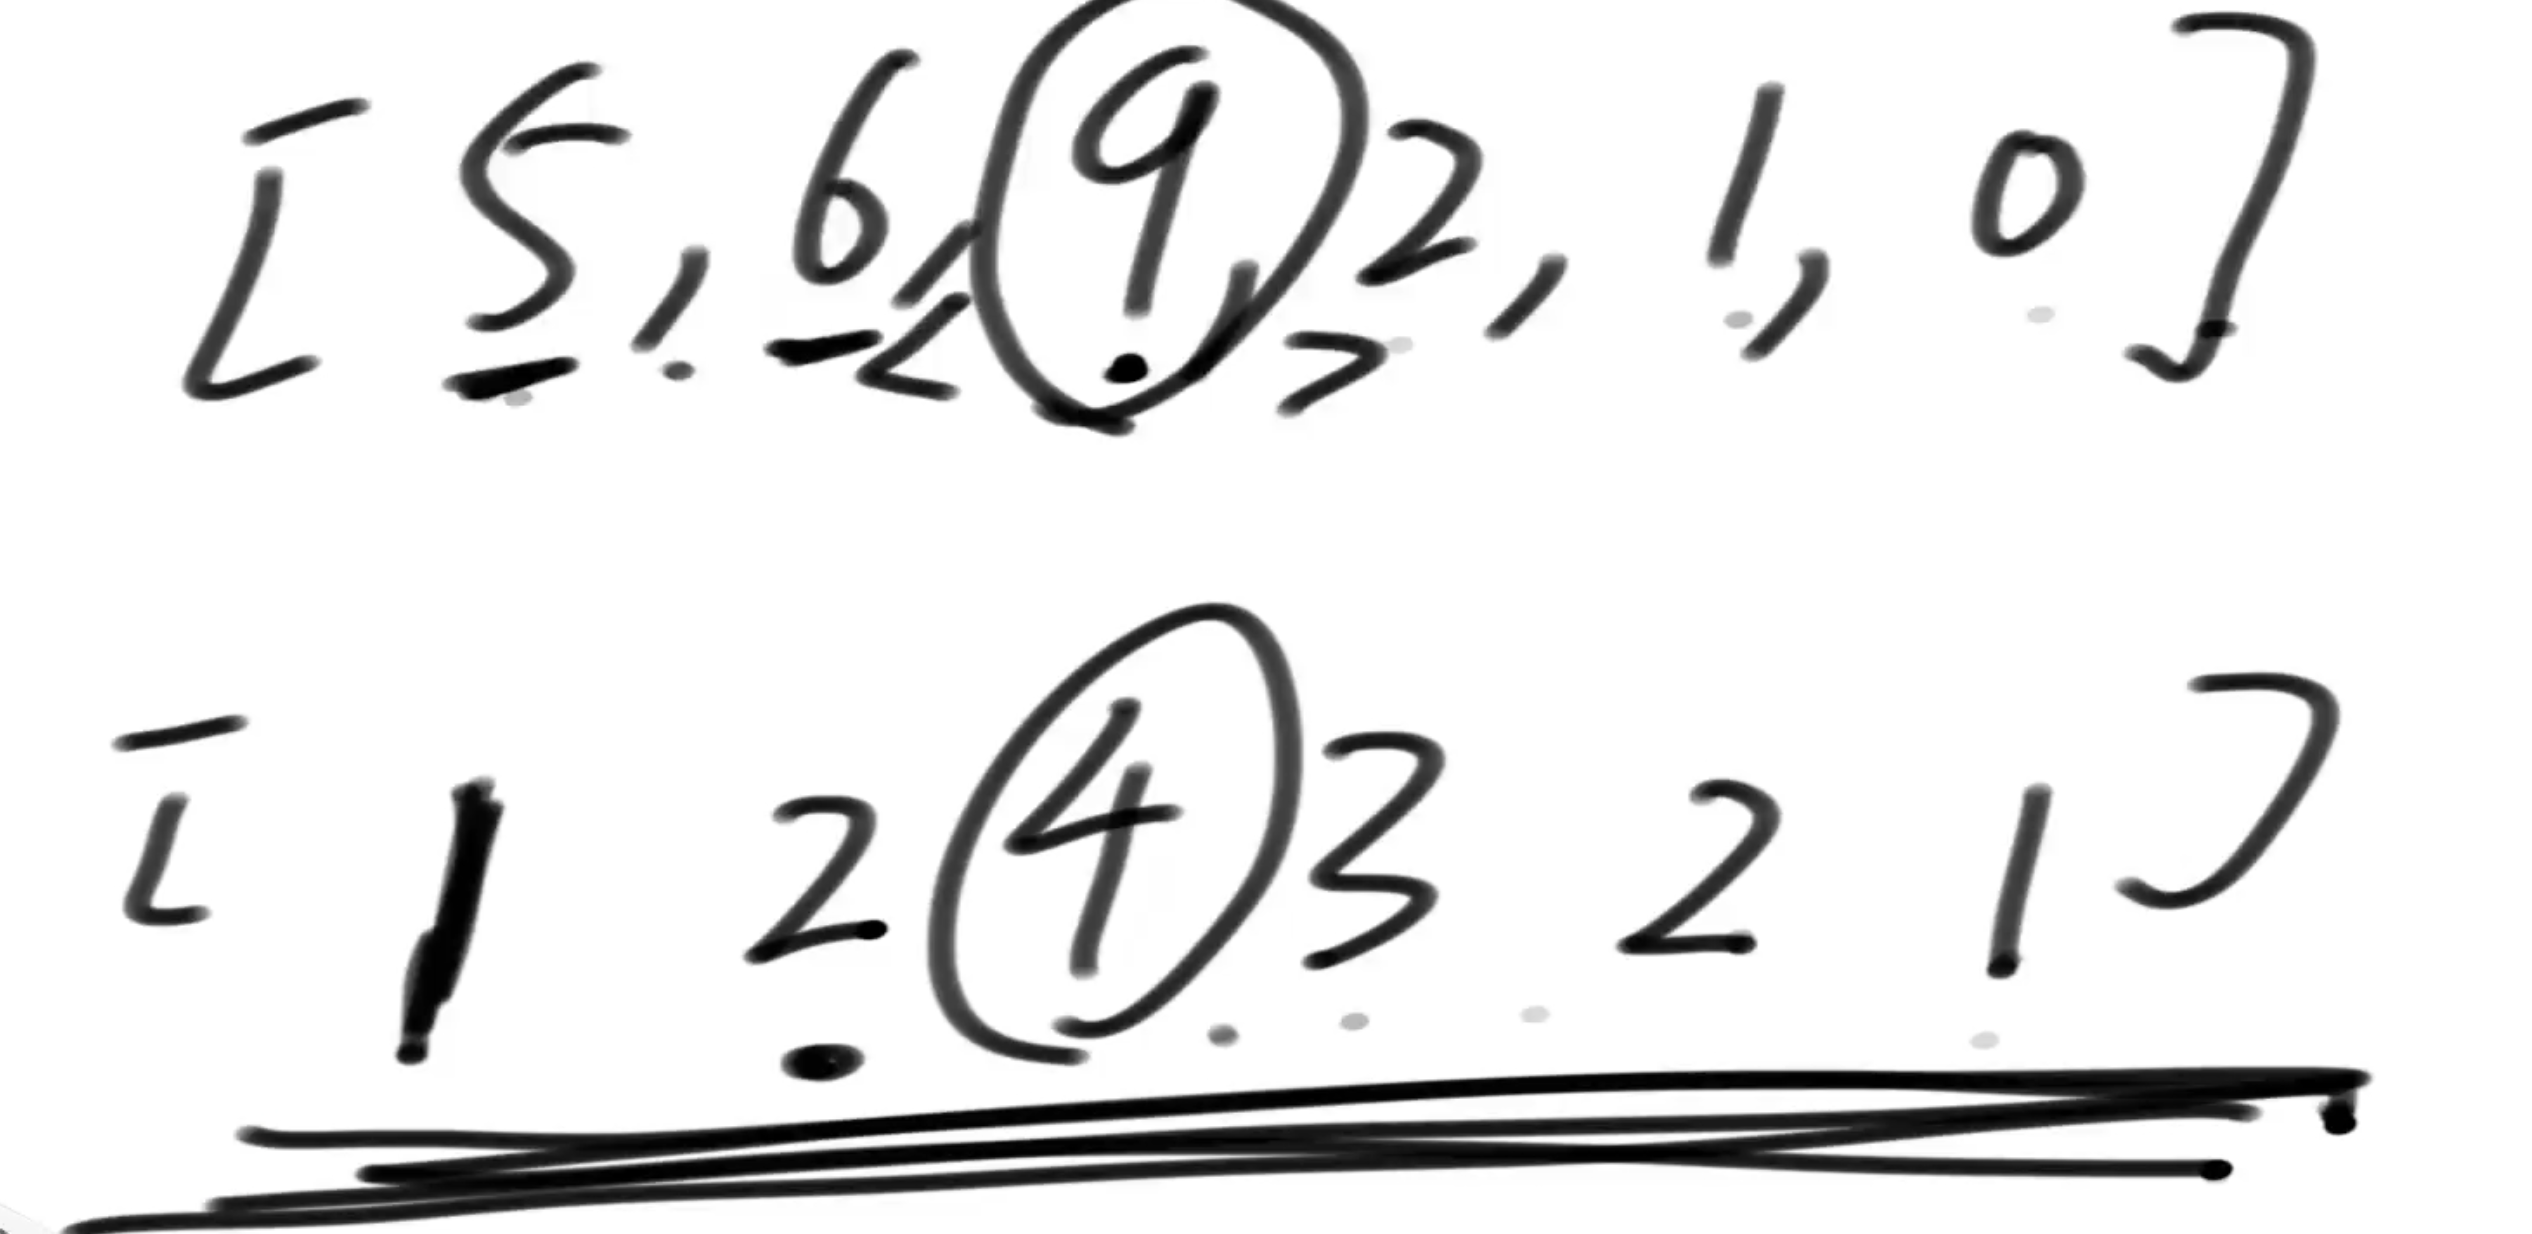 [5, 6, 9, 2, 1, 0]
< >
[1 2 4 3 2 1]